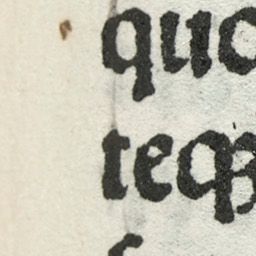 quo
teqꝫ